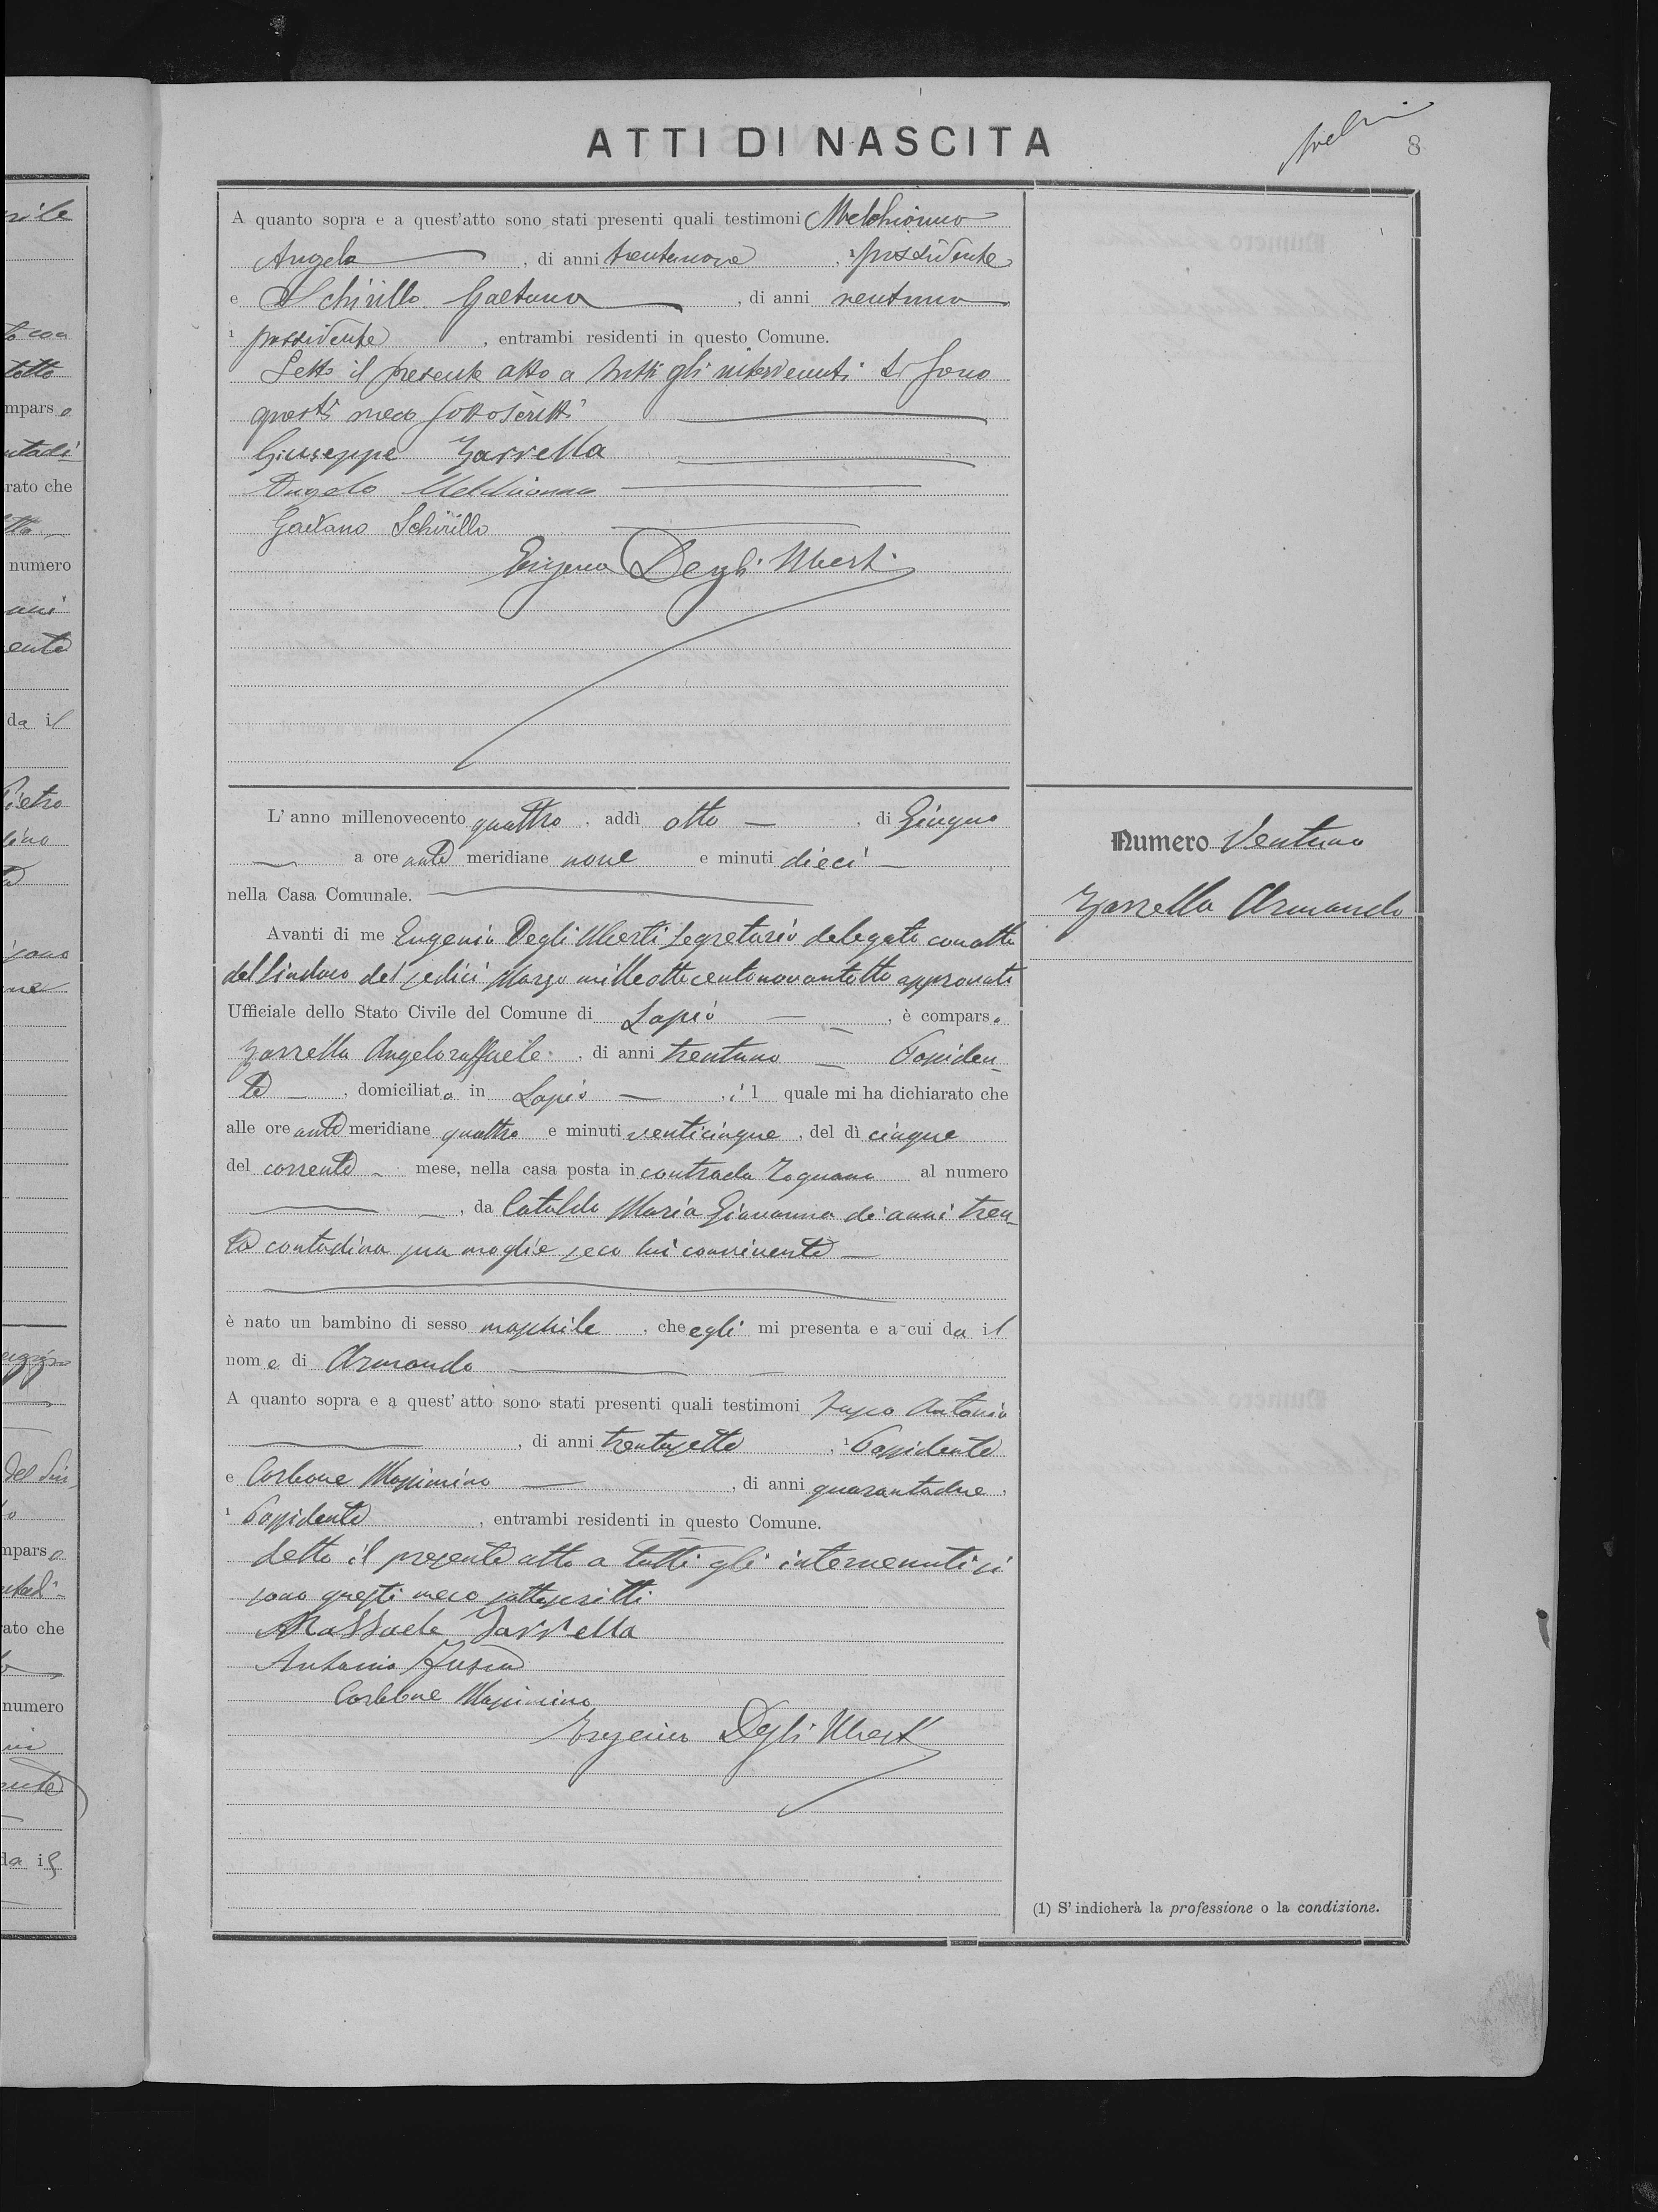 ATTI DI NASCITA
8
A quanto sopra e a quest'atto sono stati presenti quali testimoni Melchionno
Angelo, di anni trentanove, ¹ possidente
e Schirillo Gaetano, di anni ventuno
¹ possidente, entrambi residenti in questo Comune.
Letto il presente atto a tutti gli intervenuti si sono
questi meco sottoscritti
Giuseppe Zarrella
Angelo Melchionno
Gaetano Schirillo
Eugenio Degli Uberti
L'anno millenovecento quattro, addì otto, di Giugno
a ore ante meridiane nove e minuti dieci
nella Casa Comunale.
Avanti di me Eugenio Degli Uberti Segretario delegato con atto
del Sindaco del sedici Marzo milleottocentonovantotto approvato
Ufficiale dello Stato Civile del Comune di Lapio, è comparso
Zarrella Angeloraffaele, di anni trentuno Possiden-
te, domiciliato in Lapio, il quale mi ha dichiarato che
alle ore ante meridiane quattro e minuti venticinque, del dì cinque
del corrente mese, nella casa posta in contrada al numero
, da Cataldo Maria Giovanna di anni tren-
ta contadina sua moglie seco lui convivente
è nato un bambino di sesso maschile, che egli mi presenta e a cui da il
nome di Armando
A quanto sopra e a quest'atto sono stati presenti quali testimoni Antonio
, di anni trentasette, ¹ Possidente
e Carbone Massimino, di anni quarantadue,
¹ Possidente, entrambi residenti in questo Comune.
Letto il presente atto a tutti gli intervenuti si
sono questi meco sottoscritti
Raffaele Zarrella
Antonio
Carbone Massimino
Eugenio Degli Uberti
Numero Ventuno
Zarrella Armando
(1) S'indicherà la professione o la condizione.